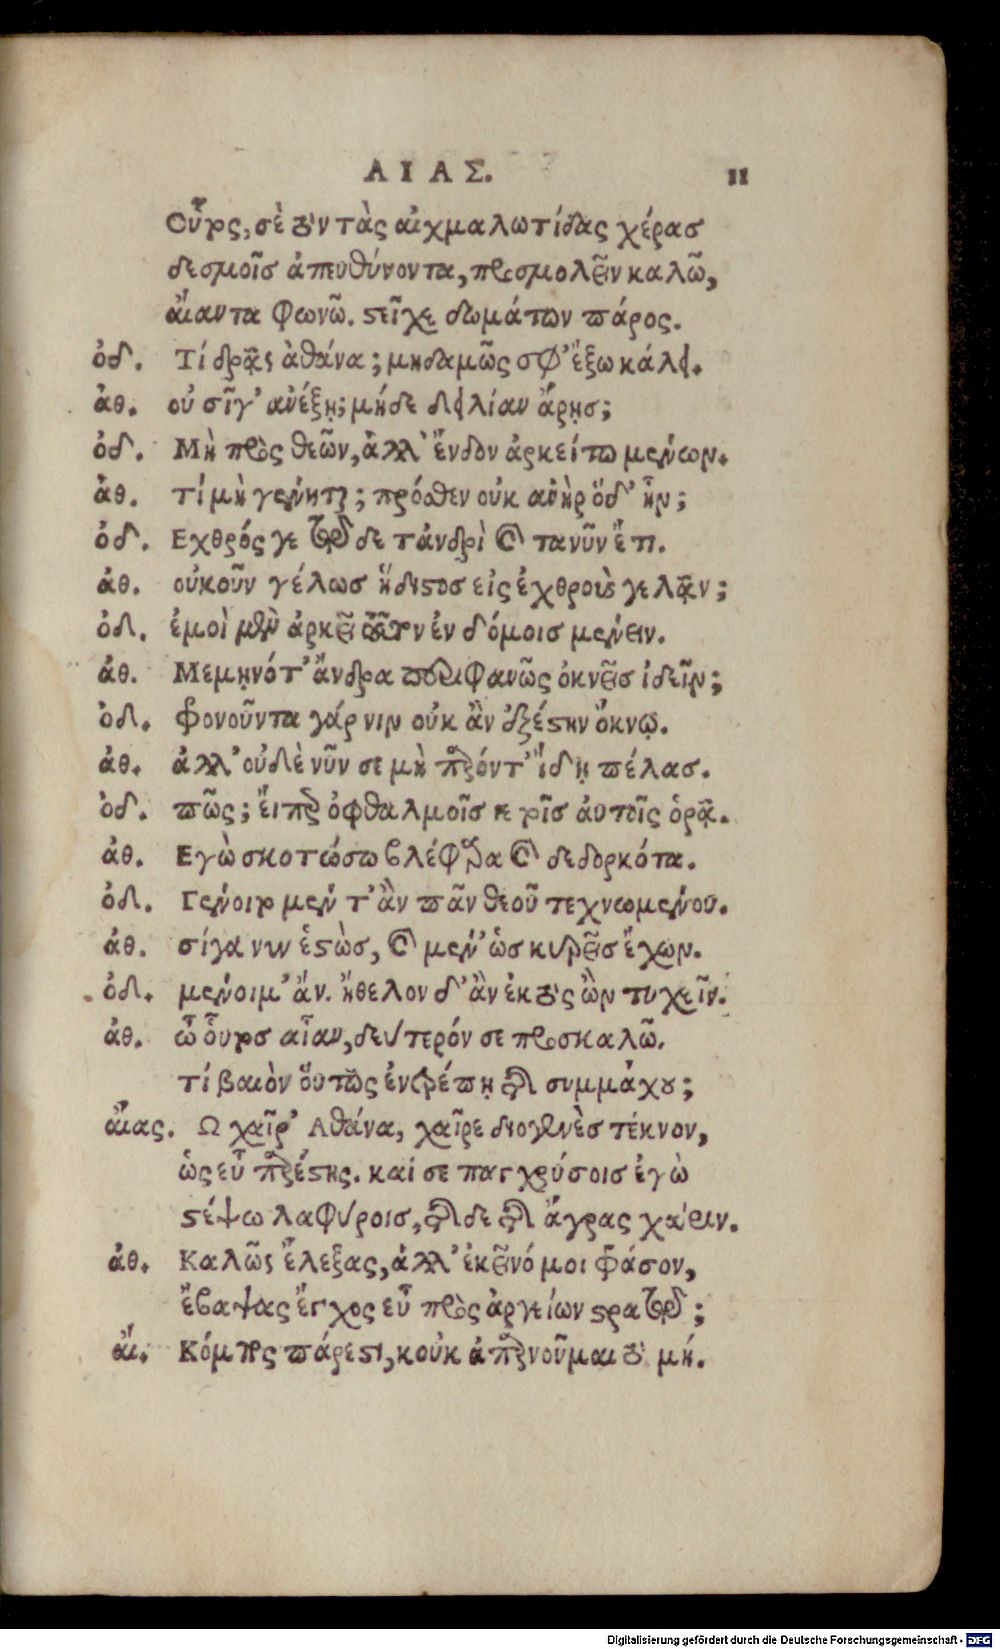 ΑΙΑΣ. 11
Οὗτος, σὲ τὸν τὰς αἰχμαλωτίδας χέρας
δεσμοῖς ἀπευθύνοντα, προσμολεῖν καλῶ,
αἴαντα φωνῶ. στεῖχε δωμάτων πάρος.
ὀδ. Τί δρᾷς ἀθάνα; μηδαμῶς σφ' ἔξω κάλει.
ἀθ. οὐ σῖγ' ἀνέξῃ; μήδε δειλίαν ἄρῃς;
ὀδ. Μὴ πρὸς θεῶν, ἀλλ' ἔνδον ἀρκείτω μένων.
ἀθ. τί μὴ γένηται; πρόσθεν οὐκ ἀνὴρ ὅδ' ἦν;
ὀδ. Εχθρός γε τῷδε τἀνδρὶ καὶ τανῦν ἔτι.
ἀθ. οὐκοῦν γέλως ἥδιστος εἰς ἐχθροὺς γελᾷν;
ὀδ. ἐμοὶ μὲν ἀρκεῖ τοῦτον ἐν δόμοις μένειν.
ἀθ. Μεμηνότ' ἄνδρα περιφανῶς ὀκνεῖς ἰδεῖν;
ὀδ. φρονοῦντα γάρ νιν οὐκ ἂν ἐξέστην ὄκνῳ.
ἀθ. ἀλλ' οὐδὲ νῦν σε μὴ παρόντ' ἴδῃ πέλας.
ὀδ. πῶς; εἴπερ ὀφθαλμοῖς γε τοῖς αὐτοῖς ὁρᾷ.
ἀθ. Εγὼ σκοτώσω βλέφαρα καὶ δεδορκότα.
ὀδ. Γένοιτο μέν τ' ἂν πᾶν θεοῦ τεχνωμένου.
ἀθ. σίγα νυν ἑστὼς, καὶ μέν' ὡς κυρεῖς ἔχων.
ὀδ. μένοιμ' ἄν. ἤθελον δ' ἂν ἐκτὸς ὢν τυχεῖν.
ἀθ. ὦ οὗτος αἶαν, δεύτερόν σε προσκαλῶ.
τί βαιὸν οὕτως ἐντρέπῃ τῆς συμμάχου;
αἴας. Ω χαῖρ' Αθάνα, χαῖρε διογενὲς τέκνον,
ὡς εὖ παρέστης. καί σε παγχρύσοις ἐγὼ
στέψω λαφύροις, τῆσδε τῆς ἄγρας χάριν.
ἀθ. Καλῶς ἔλεξας, ἀλλ' ἐκεῖνό μοι φράσον,
ἔβαψας ἔγχος εὖ πρὸς ἀργείων στρατῷ;
αἴ. Κόμπος πάρεστι, κοὐκ ἀπαρνοῦμαι τὸ μή.
Digitalisierung gefördert durch die Deutsche Forschungsgemeinschaft - DFG